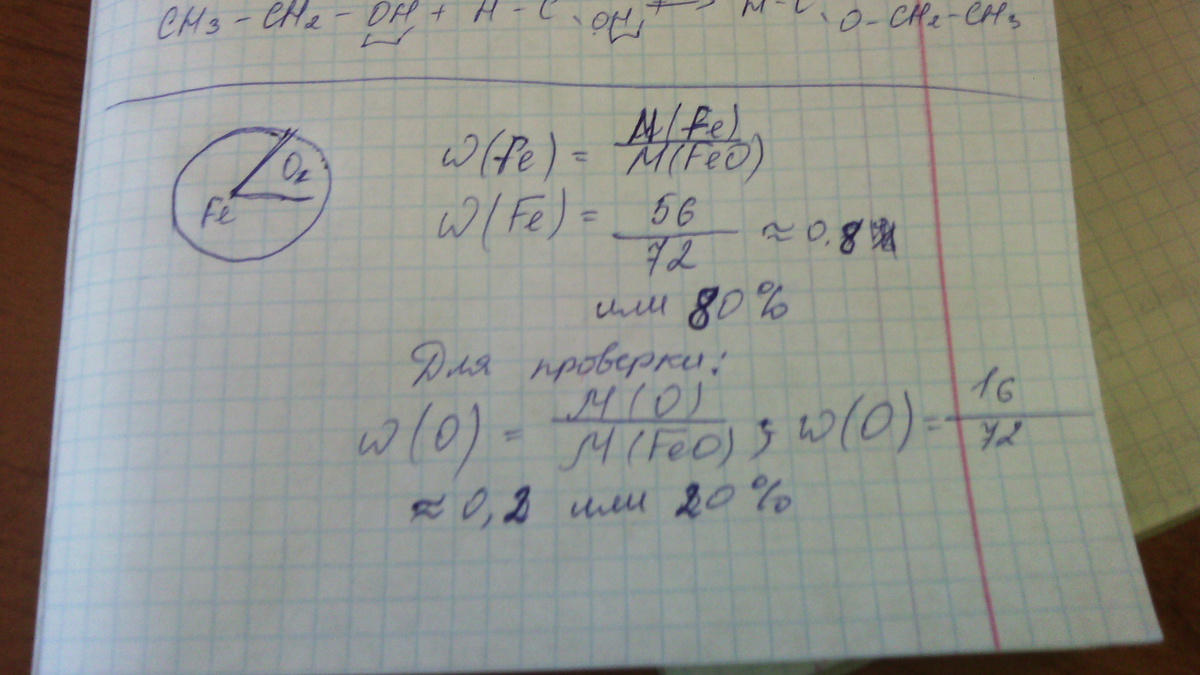 CH3 - CH2 - OH + H - C OH ⇄ H - C O - CH2 - CH3
O2
Fe
W(Fe) = M(Fe) / M(FeO)
W(Fe) = 56 / 72 ≈ 0.8
или 80%
Для проверки:
W(O) = M(O) / M(FeO) ; W(O) = 16 / 72
≈ 0,2 или 20%